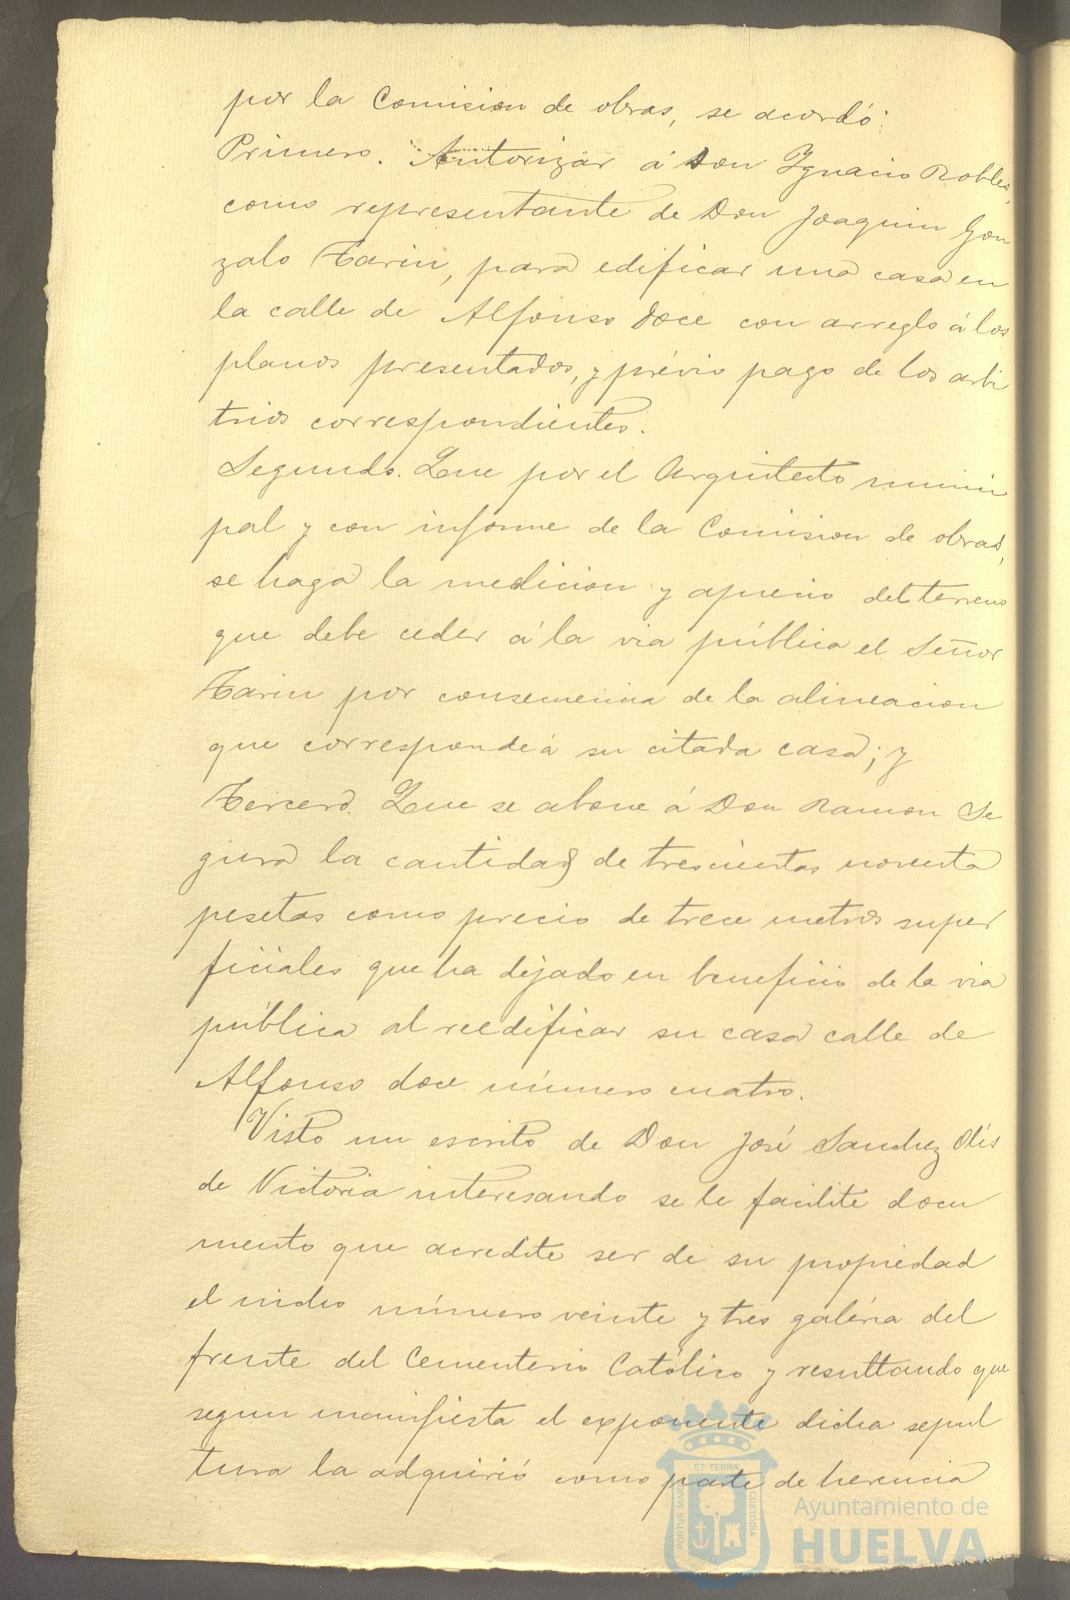 por la Comision de obras, se acordó:
Primero. Autorizar á Don Ygnacio Robles,
como representante de Don Joaquin Gon
zalo Tarin, para edificar una casa en
la calle de Alfonso doce con arreglo á los
planos presentados, y prévio pago de los arbi
trios correspondientes.
Segundo. Que por el Arquitecto munici
pal y con informe de la Comision de obras,
se haga la medicion y aprecio del terreno
que debe ceder á la via pública el Señor
Tarin por consecuencia de la alineacion
que corresponde á su citada casa; y
Tercero. Que se abone á Don Ramon Se
gura la cantidad de trescientas noventa
pesetas como precio de trece metros super
ficiales que ha dejado en beneficio de la via
pública al reedificar su casa calle de
Alfonso doce número cuatro.
Visto un escrito de Don José Sanchez
de Victoria interesando se le facilite docu
mento que acredite ser de su propiedad
el nicho número veinte y tres galéria del
frente del Cementerio Católico y resultando que
segun manifiesta el exponente dicha sepul
tura la adquirió como parte de herencia
ET TERRAE
PORTUS MARIS
CUSTODIA
Ayuntamiento de
HUELVA